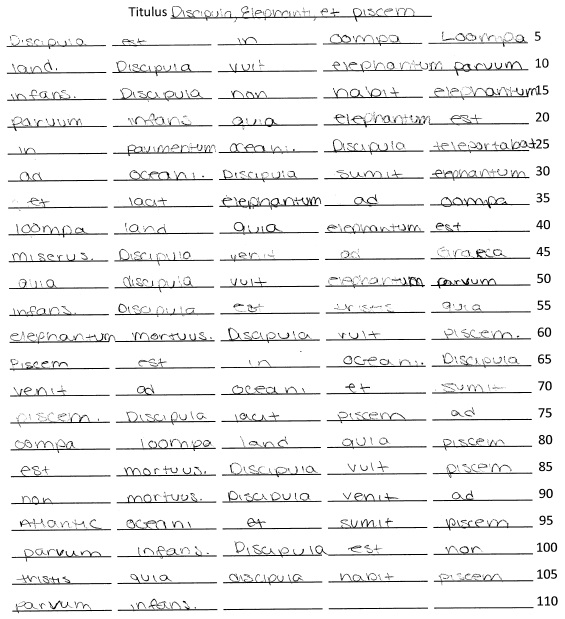 Titulus Discipula, Elephanti, et piscem
Discipula est in oompa Loompa 5
land. Discipula vult elephantum parvum 10
infans. Discipula non habit elephantum 15
parvum infans quia elephantum est 20
in pavimentum oceani. Discipula teleportabat 25
ad oceani. Discipula sumit elphantum 30
et iacit elephantum ad oompa 35
loompa land quia elephantum est 40
miserus. Discipula venit ad Graeca 45
quia discipula vult elephantum parvum 50
infans. Discipula est tristis quia 55
elephantum mortuus. Discipula vult piscem. 60
Piscem est in oceani. Discipula 65
venit ad oceani et sumit 70
piscem. Discipula iacit piscem ad 75
oompa loompa land quia piscem 80
est mortuus. Discipula vult piscem 85
non mortuus. Discipula venit ad 90
Atlantic oceani et sumit piscem 95
parvum infans. Discipula est non 100
tristis quia discipula habit piscem 105
parvum infans. 110